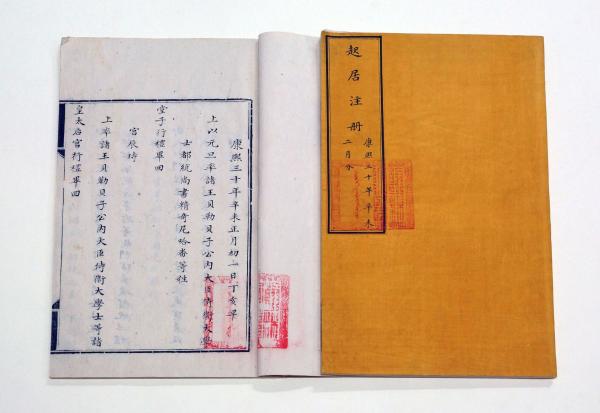 起居注册
康熙三十年辛未
二月分
康熙三十年辛未正月初一日丁亥早
上以元旦率諸王貝勒貝子公內大臣侍衛大學
士都統尚書精奇尼哈番等往
堂子行禮畢回
宮辰時
上率諸王貝勒貝子公內大臣侍衛大學士等詣
皇太后宮行禮畢回